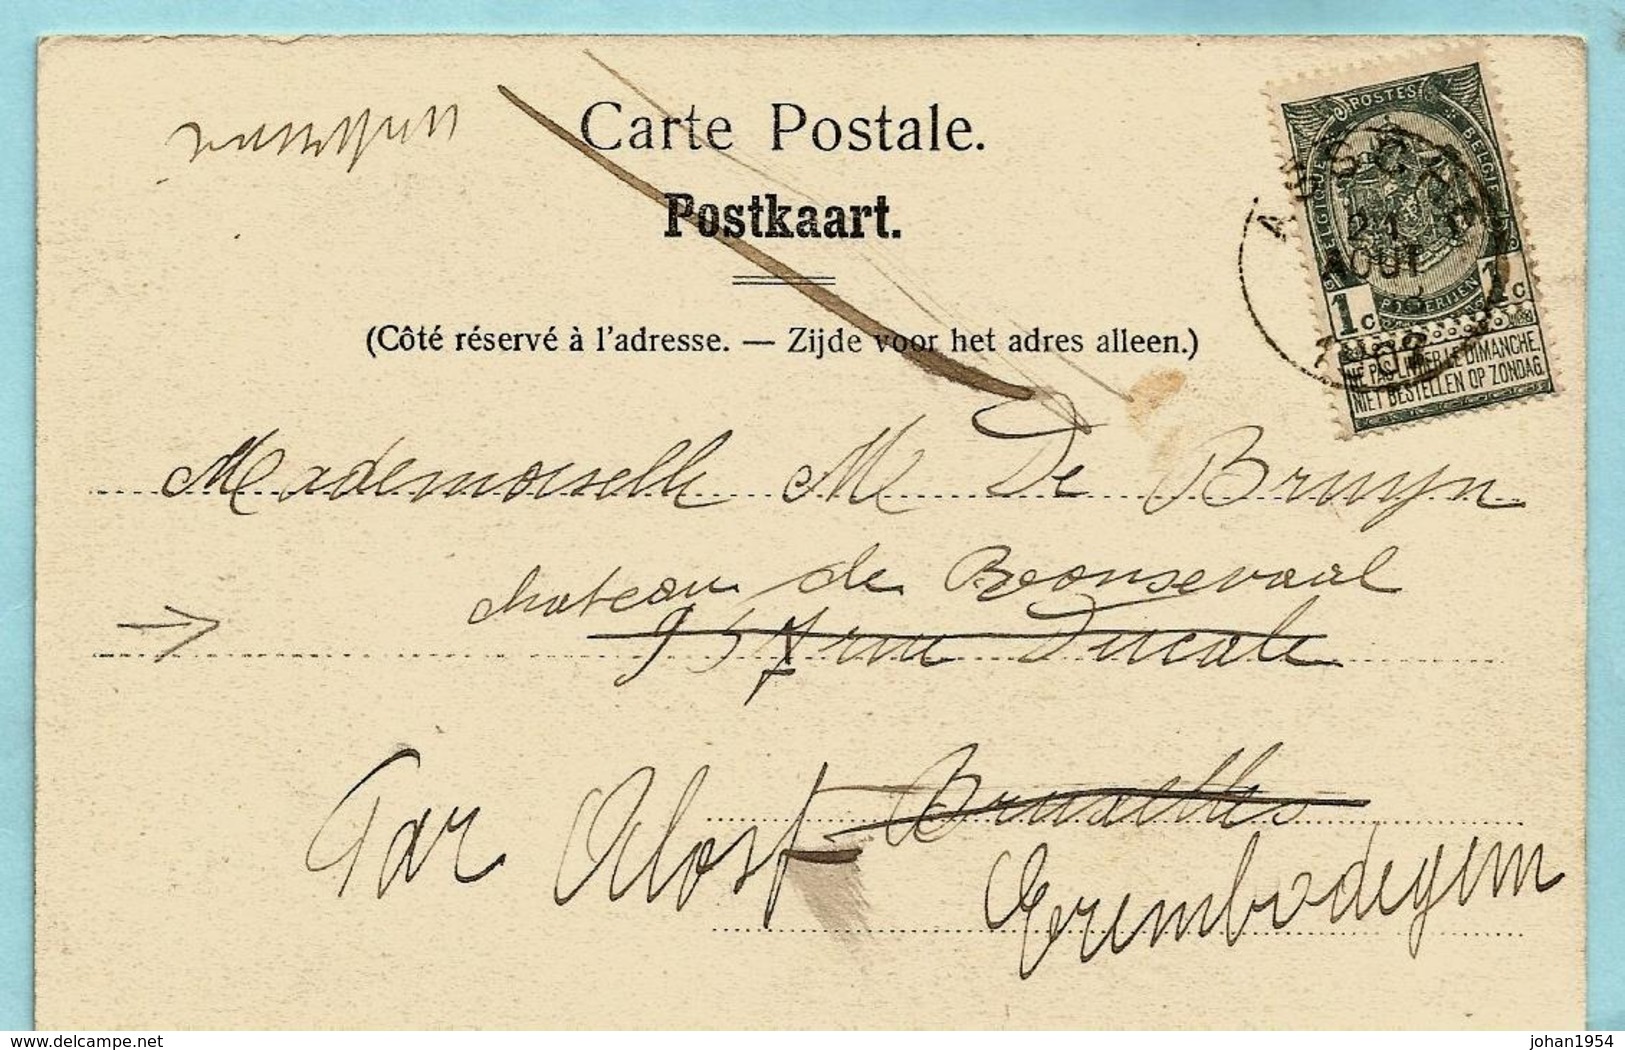 Carte Postale.
Postkaart.
(Côté réservé à l'adresse. — Zijde voor het adres alleen.)
POSTES
BELGIQUE BELGIE
POSTERIJEN
1c 1c
NE PAS LIVRER LE DIMANCHE
NIET BESTELLEN OP ZONDAG
21
AOUT
Mademoiselle M De Bruyn
chateau de Ronsevaal
rue Ducale
Par Alost Bruxelles
Erembodegem
delcampe.net
johan1954